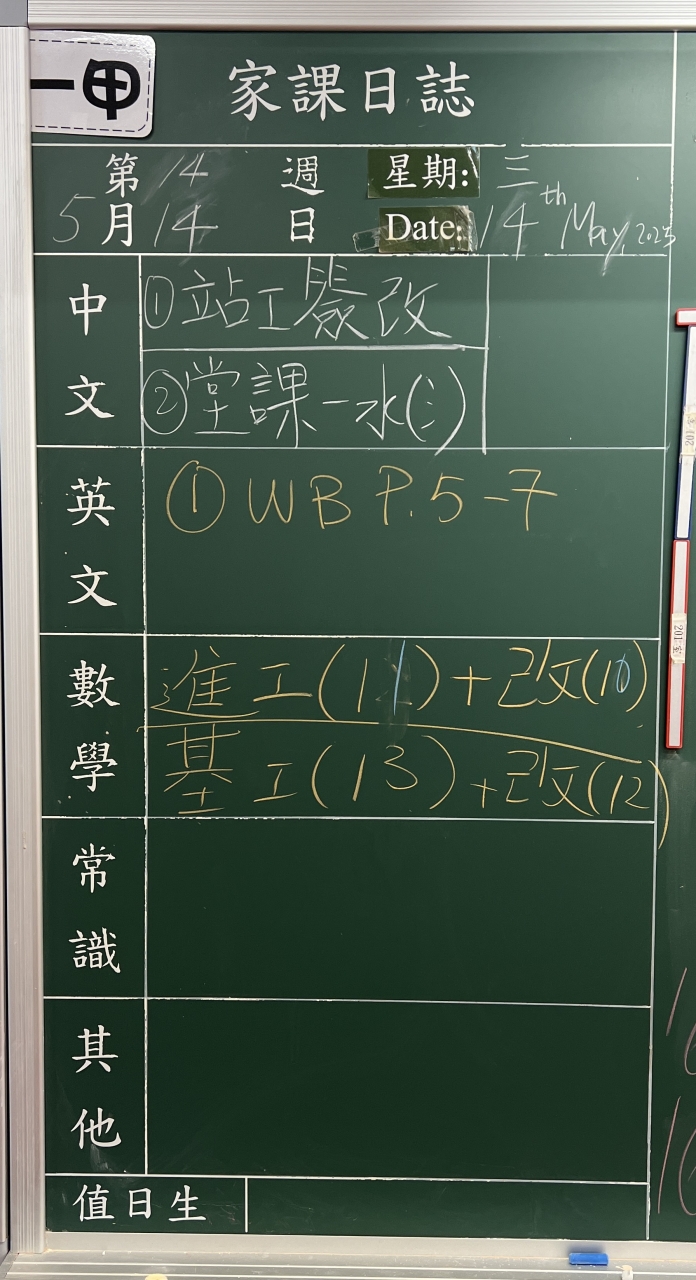 一甲
家課日誌
第 14 週 星期: 三
5月 14 日 Date: 14th May, 2025
中文
①站工 改
②堂課一水(三)
英文
① WB P.5-7
數學
進工(11)+改(10)
基工(13)+改(12)
常識
其他
值日生